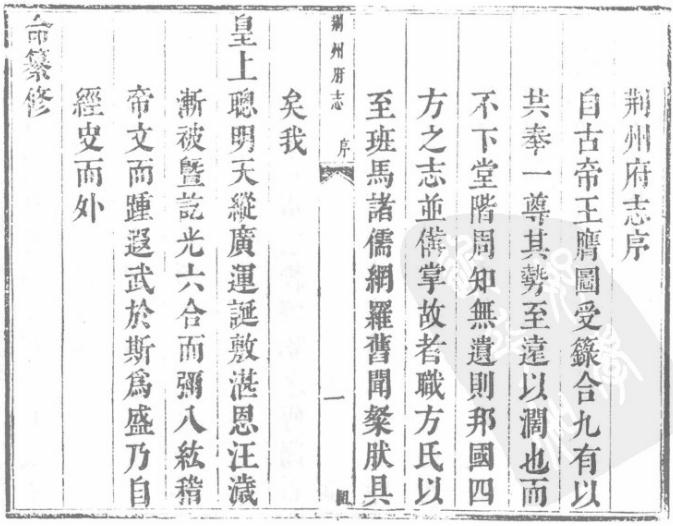 荆州府志序
自古帝王膺圖受籙合九有以
共奉一尊其勢至遠以濶也而
不下堂階周知無遺則邦國四
方之志並備掌故者職方氏以
至班馬諸儒網羅舊聞粲肰具
荆州府志 序 一
矣我
皇上聰明天縱廣運誕敷湛恩汪濊
漸被曁訖光六合而彌八紘稽
帝文而踵遐武於斯爲盛乃自
經史而外
命纂修